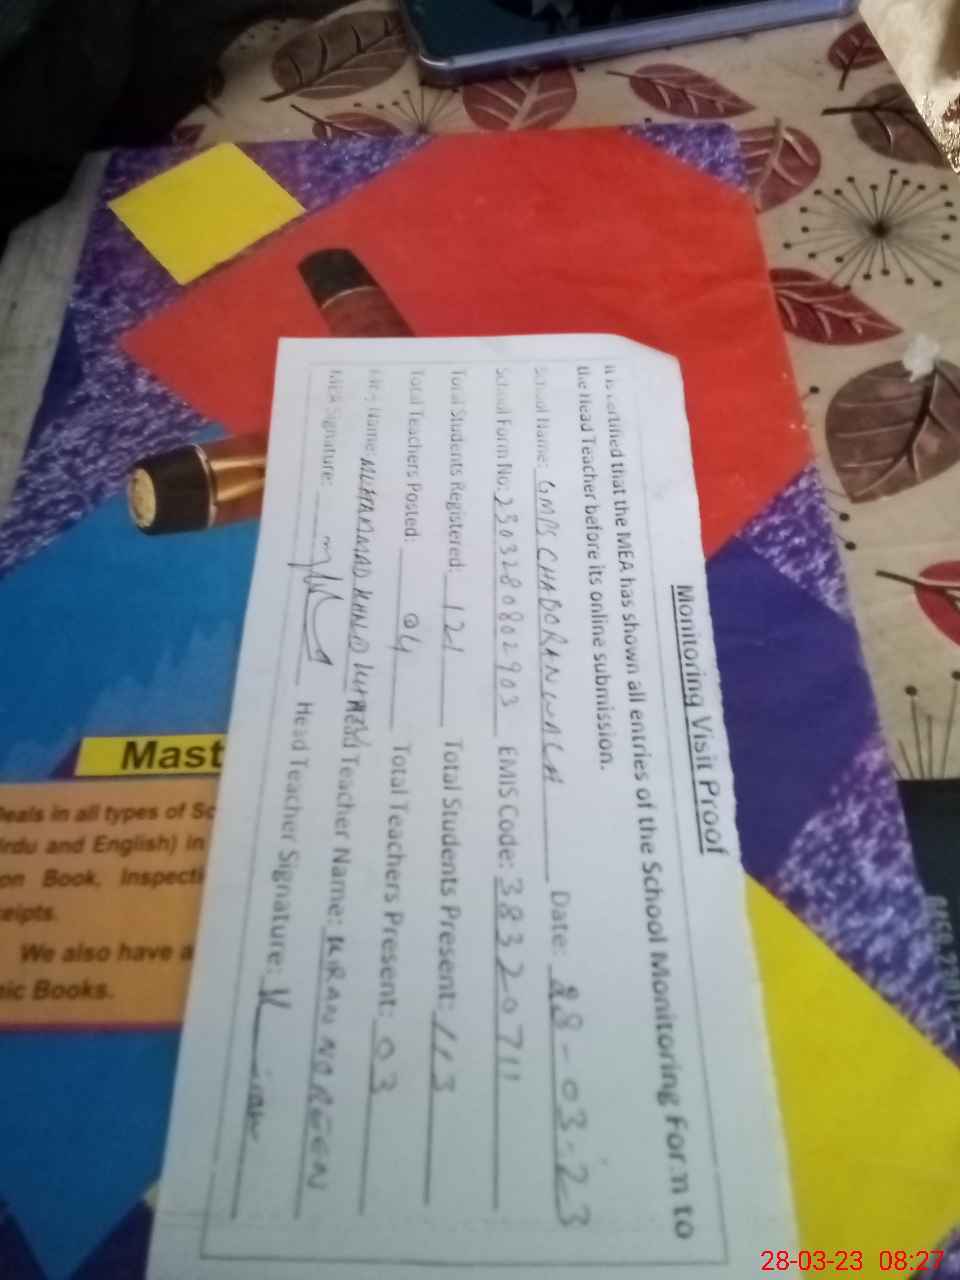 Monitoring Visit Proof
It is certified that the MEA has shown all entries of the School Monitoring Form to
the Head Teacher before its online submission.
School Name: GMPS CHABORANWALA Date: 28-03-23
School Form No: 2303280802903 EMIS Code: 38320711
Total Students Registered: 121 Total Students Present: 113
Total Teachers Posted: 04 Total Teachers Present: 03
MEA Name: MUHAMMAD KHALID Head Teacher Name: KIRAN NOREEN
MEA Signature: Head Teacher Signature:
Mast
Deals in all types of Sc
Urdu and English) in
on Book, Inspecti
ceipts.
We also have a
nic Books.
28-03-23 08:27